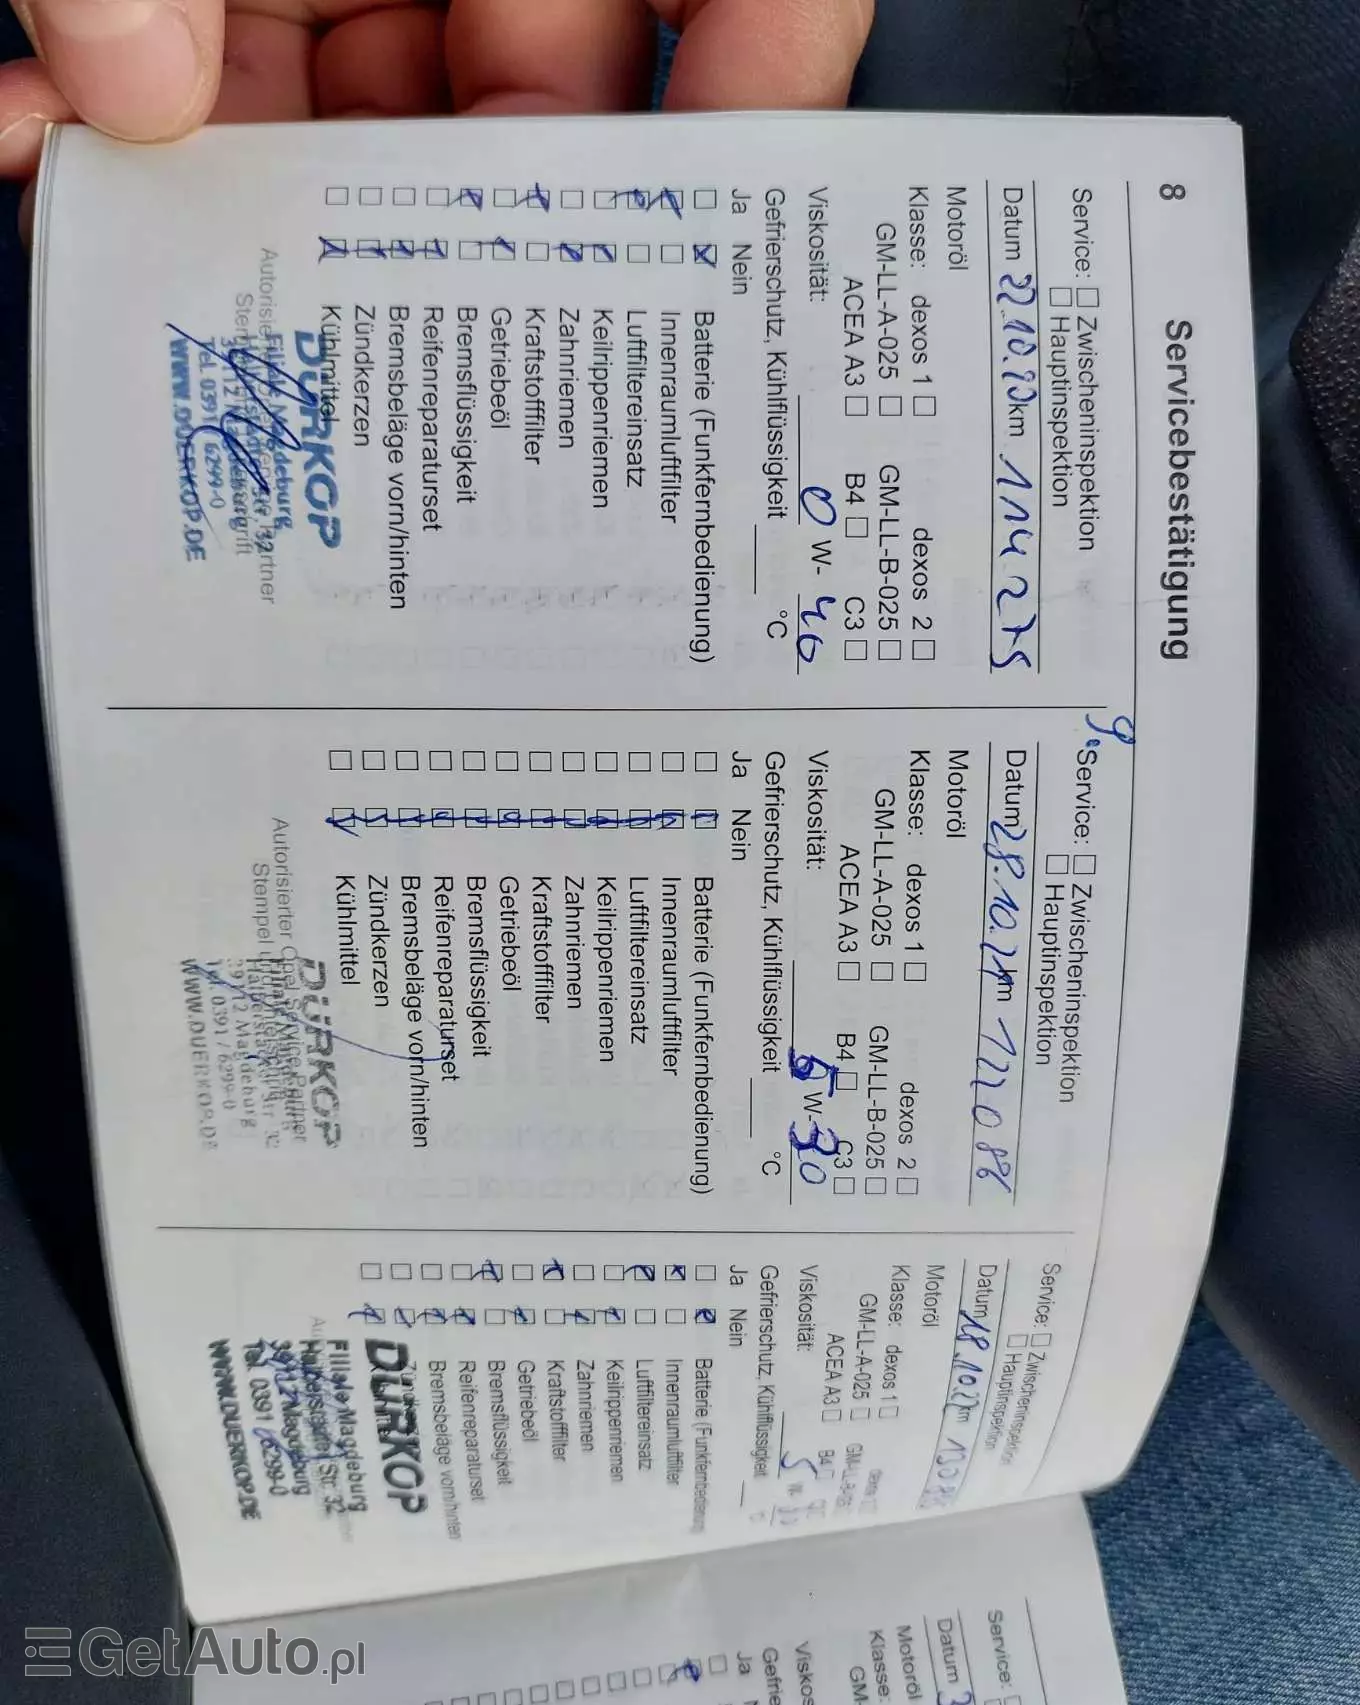 8 Servicebestätigung
Service: ☐ Zwischeninspektion
☐ Hauptinspektion
Datum 22.10.20 km 114 275
Motoröl
Klasse: dexos 1 ☐ dexos 2 ☐
GM-LL-A-025 ☐ GM-LL-B-025 ☐
ACEA A3 ☐ B4 ☐ C3 ☐
Viskosität: 0 W- 40
Gefrierschutz, Kühlflüssigkeit ____ °C
Ja Nein
☐ ☒ Batterie (Funkfernbedienung)
☒ ☐ Innenraumluftfilter
☒ ☐ Luftfiltereinsatz
☐ ☒ Keilrippenriemen
☐ ☒ Zahnriemen
☒ ☐ Kraftstofffilter
☐ ☒ Getriebeöl
☒ ☐ Bremsflüssigkeit
☐ ☒ Reifenreparaturset
☐ ☒ Bremsbeläge vorn/hinten
☐ ☒ Zündkerzen
☐ ☒ Kühlmittel
DÜRKOP
Filiale Magdeburg
Tel. 0391 / 6299-0
WWW.DUERKOP.DE
9. Service: ☐ Zwischeninspektion
☐ Hauptinspektion
Datum 28.10.21 km 122 086
Motoröl
Klasse: dexos 1 ☐ dexos 2 ☐
GM-LL-A-025 ☐ GM-LL-B-025 ☐
ACEA A3 ☐ B4 ☐ C3 ☐
Viskosität: 5 W- 30
Gefrierschutz, Kühlflüssigkeit ____ °C
Ja Nein
☐ ☒ Batterie (Funkfernbedienung)
☐ ☒ Innenraumluftfilter
☐ ☒ Luftfiltereinsatz
☐ ☒ Keilrippenriemen
☐ ☒ Zahnriemen
☐ ☒ Kraftstofffilter
☐ ☒ Getriebeöl
☐ ☒ Bremsflüssigkeit
☐ ☒ Reifenreparaturset
☐ ☒ Bremsbeläge vorn/hinten
☐ ☒ Zündkerzen
☐ ☒ Kühlmittel
Autorisierter Opel Service Partner
DÜRKOP
39112 Magdeburg
Tel. 0391 / 6299-0
WWW.DUERKOP.DE
Service: ☐ Zwischeninspektion
☐ Hauptinspektion
Datum 18.10.22 km
Motoröl
Klasse: dexos 1 ☐
GM-LL-A-025 ☐
ACEA A3 ☐ B4 ☐
Viskosität: 5 W-
Gefrierschutz, Kühlflüssigkeit
Ja Nein
☐ ☒ Batterie (Funkfernbedienung)
☒ ☐ Innenraumluftfilter
☒ ☐ Luftfiltereinsatz
☐ ☒ Keilrippenriemen
☐ ☒ Zahnriemen
☒ ☐ Kraftstofffilter
☐ ☒ Getriebeöl
☒ ☐ Bremsflüssigkeit
☐ ☒ Reifenreparaturset
☐ ☒ Bremsbeläge vorn/hinten
DÜRKOP
Filiale Magdeburg
Halberstädter Str. 32
39112 Magdeburg
Tel. 0391 / 6299-0
WWW.DUERKOP.DE
Service:
Datum
Motoröl
Klasse:
Ja
GetAuto.pl